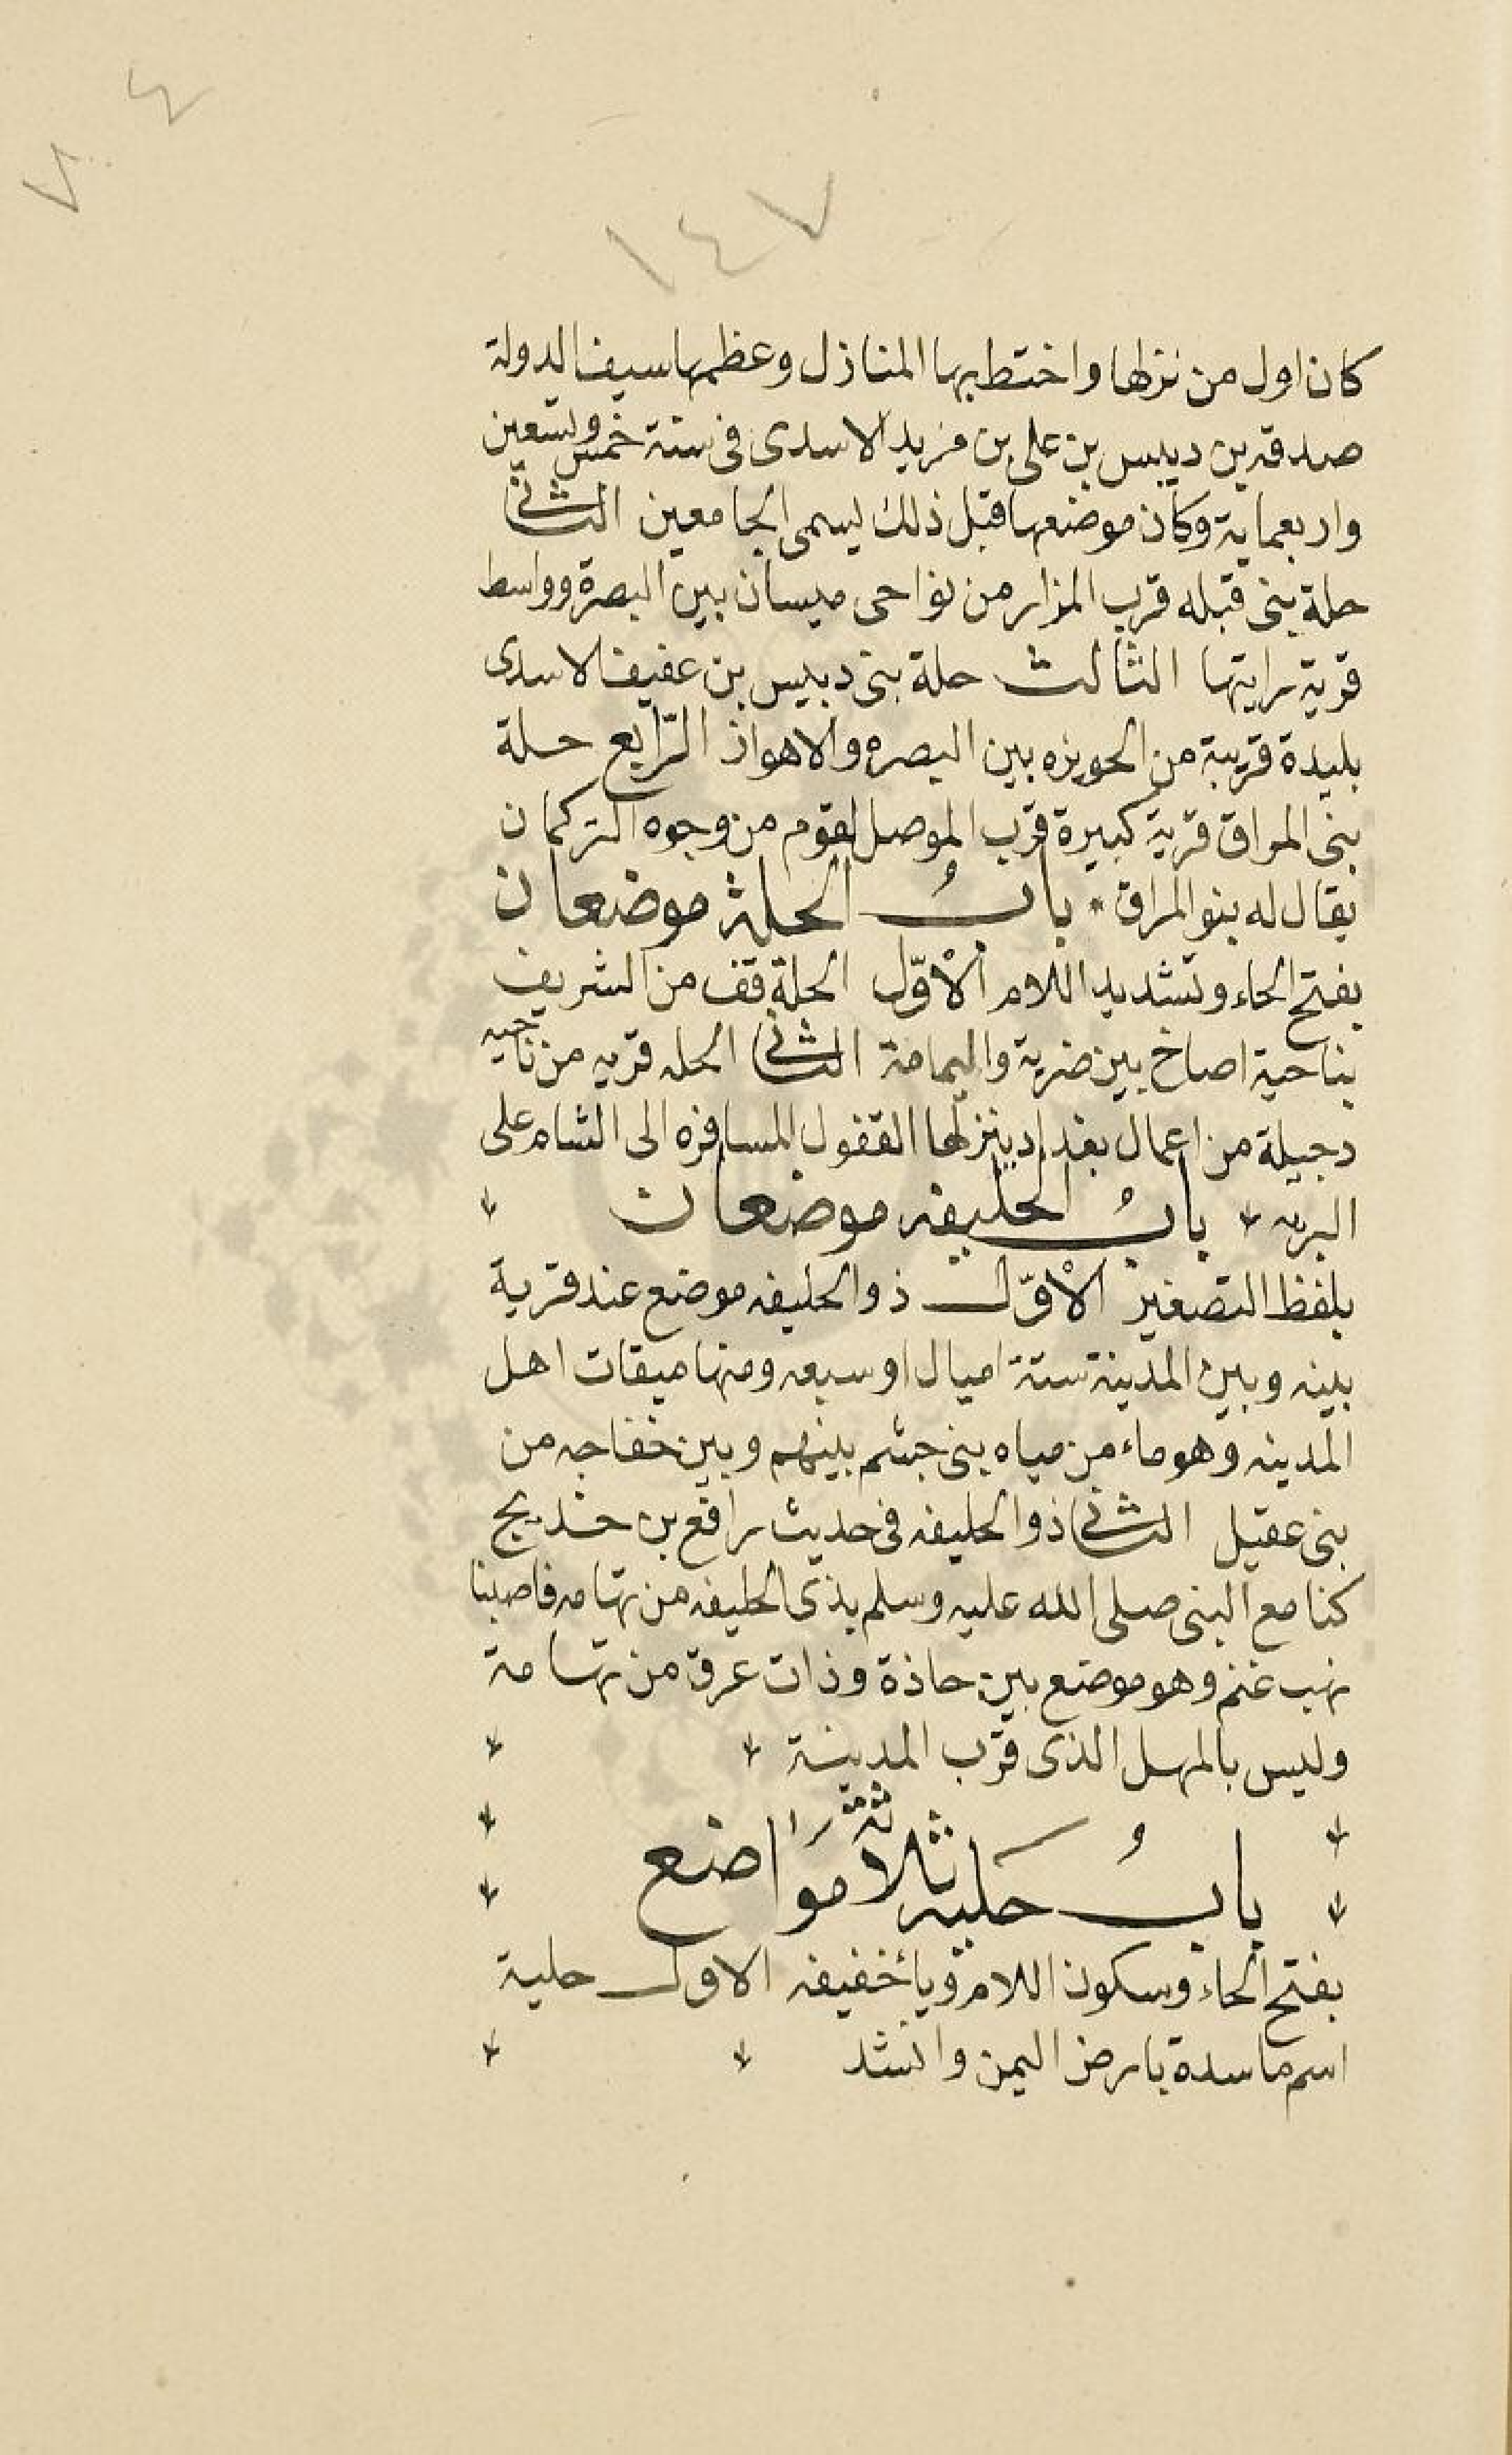 ٤
٧
١٤٧
كان اول من نزلها واختط بها المنازل وعظمها سيف الدولة
صدقه بن دبيس بن على بن مزيد الاسدى فى سنة خمس وتسعين
واربعماية وكان موضعها قبل ذلك يسمى الجامعين الثانى
حلة بنى قيله قرب المزار من نواحى ميسان بين البصرة وواسط
قرية رايتها الثالث حلة بنى دبيس بن عفيف الاسدى
بليدة قريبة من الحويزه بين البصره والاهواز الرّابع حلة
بنى المراق قرية كبيرة قرب الموصل لقوم من وجوه التركمان
يقال له بنو المراق * بابُ الحلة موضعان
بفتح الحاء وتشديد اللام الْاوّل الحلة قف من الشريف
بناحية اضاخ بين ضرية واليمامة الثانى الحله قريه من ناحيه
دجيلة من اعمال بغداد ينزلها القفول المسافره الى الشام على
البريه بابُ الحليفه موضعان
بلفظ التصغير الْاوّل ذوالحليفه موضع عند قرية
بينه وبين المدينة ستة اميال او سبعه ومنها ميقات اهل
المدينه وهو ماء من مياه بنى جشم بينهم وبين خفاجه من
بنى عقيل الثانى ذوالحليفه فى حديث رافع بن خديج
كنا مع النبى صلى الله عليه وسلم بذى الحليفه من تهامه فاصبنا
نهب غنم وهو موضع بين حاذة وذات عرق من تهامة
وليس بالمهل الذى قرب المدينة
بابُ حَلية ثلاثة مَوَاضع
بفتح الحاء وسكون اللام ويا خفيفه الاول حلية
اسم ماسدة بارض اليمن وانشد